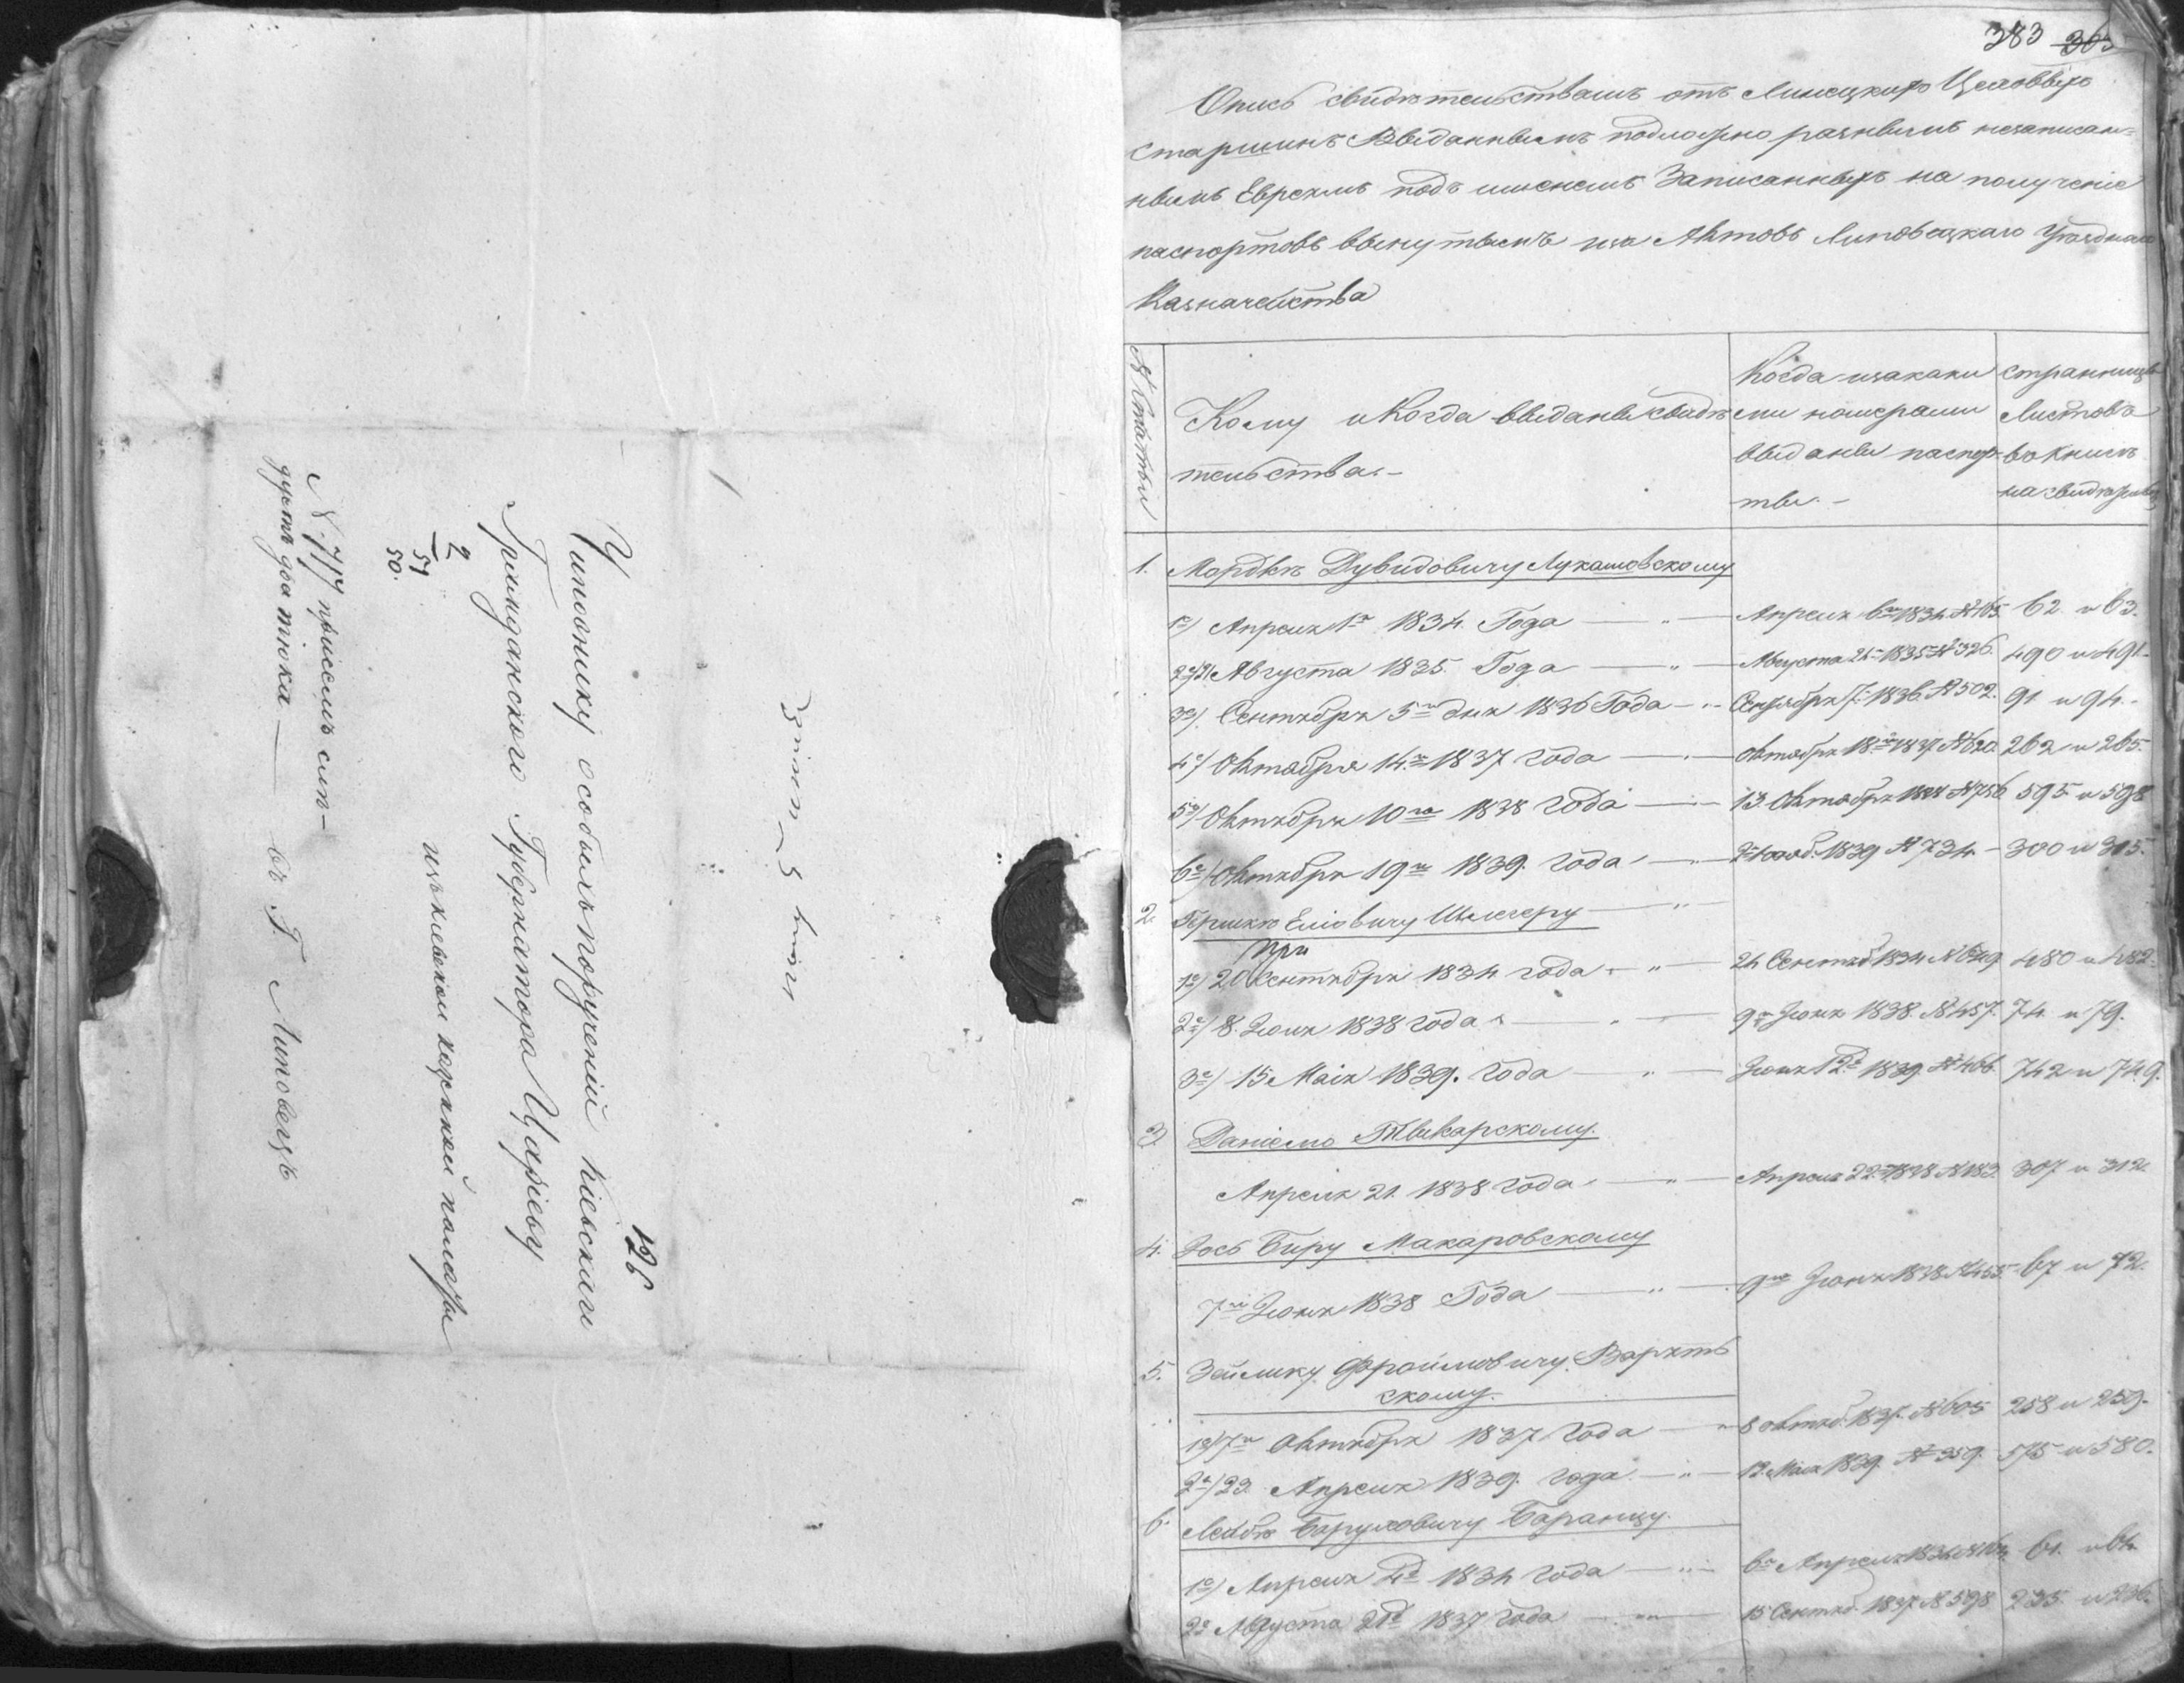 Чиновнику особыхъ порученій Кіевскаго
Гражданскаго Губернатора Царіеву
126
изъ Кіевской казенной палаты
2
51
50.
№ 717 присемъ слѣ-
дуетъ два тюка — въ Г. Липовецъ
383 365
Опись свидѣтельствамъ отъ Линецкихъ Цеховыхъ
Старшинъ Выданнымъ подложно разнымъ незаписан-
нымъ Евреямъ подъ именемъ Записанныхъ на полученіе
паспортовъ вынутымъ изъ Актовъ Липовецкаго Уѣзднаго
Казначейства
№ Статьи
Кому и Когда выданы свидѣ-
тельства.-
Когда и закаки
ми номерами
выданы паспор-
ты.-
страницы
Листовъ
въ книгѣ
1. Мордкѣ Дувидовичу Лукашовскому
1е) Апреля 1го 1834. Года — " — Апреля 6го 1834 № 165. 62 и 63.
2е) 21 Августа 1835 Года — " — Августа 21 1835 № 326. 490 и 491.
3е) Сентября 5го дня 1836 Года — " — Сентября 7. 1836. № 502. 91 и 94.
4е) Октября 14го 1837 года — " — Октября 18го 1837 № 620. 262 и 265.
5е) Октября 10го 1838 года — " — 13 Октября 1838 № 756 595 и 598
6е) Октября 19го 1839. года — " — 1839 № 734 — 300 и 305.
2. Гершкѣ Еліовичу Шмлееру — " —
при
1е) 20 Сентября 1834 года — " — 24 Сентяб 1834 № 649 480 и 482.
2е) 8. Іюня 1838 года — " — 9го Іюня 1838. № 457. 74 и 79.
3е) 15 Маія 1839. года — " — Іюня 12го 1839. № 466. 742 и 749.
3. Даніелю Тывкарскому.
Апреля 21. 1838 года — " — Апреля 22го 1838 № 183. 307 и 312.
4. Іось Беру Макаровскому
7го Іюня 1838 Года — " — 9го Іюня 1838 № 455. 67 и 72.
5. Зейлику Фроимовичу Варят-
скому.
1е) 7го Октября 1837 года — " 8 Октяб. 1837. № 605 258 и 259.
2е) 23. Апреля 1839. года — " — 12. Маія 1839. № 359. 575 и 580.
6. Лейбѣ Боруховичу Баранцу.
1е) Апреля 4го 1834 года — " — 6го Апреля 1834 61. и 64.
2е Августа 21го 1837 года — " — 15 Сентяб. 1837 № 598 235 и 236.